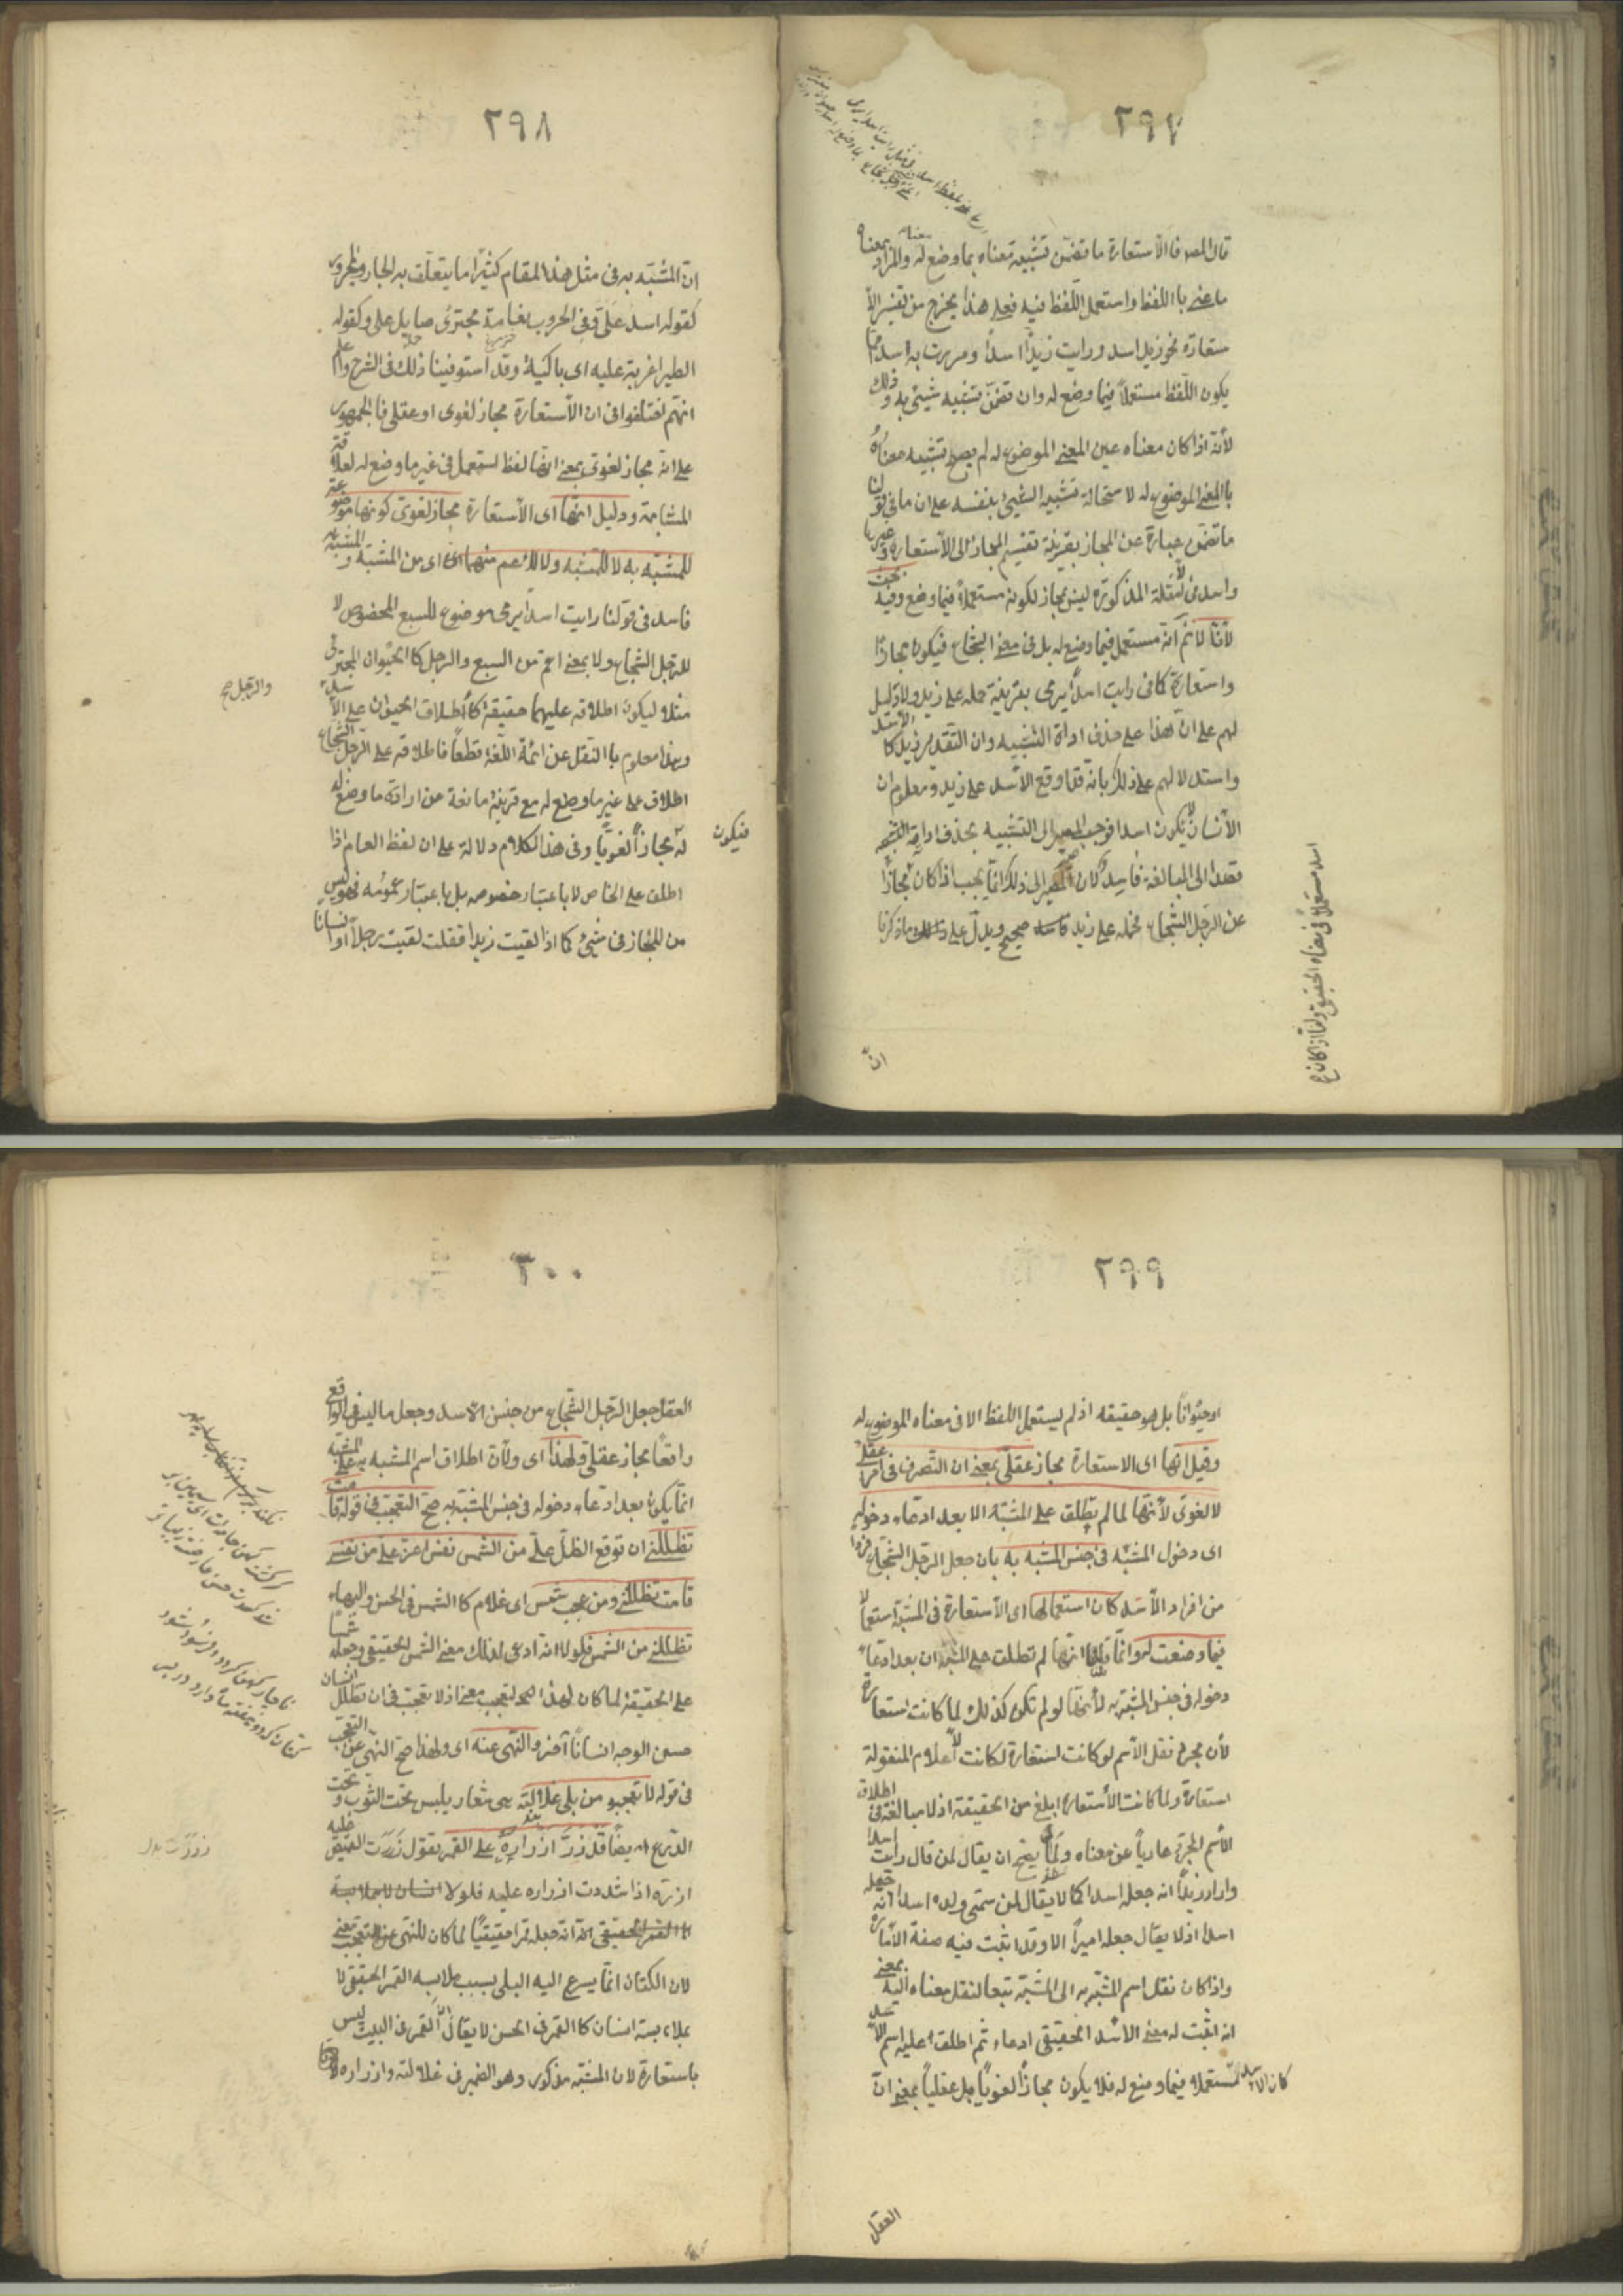 ٢٩٧
قال المص فالاستعارة ما تضمّن تشبيه معناه بما وضع له والمراد بمعناه
ما عنى باللفظ واستعمل اللّفظ فيه فعلى هذا يخرج من تفسير الا
ستعارة نحو زيد اسد ورايت زيداً اسداً ومررت به اسد مما
يكون اللّفظ مستعملاً فيما وضع له وان تضمّن تشبيه شيئ به وذلك
لأنّه اذا كان معناه عين المعنى الموضوع له لم يصح تشبيه معناه
باالمعنى الموضوع له لاستحالة تشبيه الشيئ بنفسه على ان ما فى قولنا
ما تضمّن عبارة عن المجاز بقرينة تقسيم المجاز الى الأستعارة وغيرها
واسد فى الأمثلة المذكورة ليس بمجاز لكونه مستعملاً فيما وضع وفيه بحث
لأنّا لا نم انّه مستعمل فيما وضع له بل فى معنى الشجاع فيكون مجازاً
واستعارة كما فى رايت اسداً يرمى بقرينة حمله على زيد ولا دليل
لهم على انّ هذا على حذف اداة التشبيه وان التقدير زيد كالأسد
واستدلالهم على ذلك بانّه قد اوقع الأسد على زيد ومعلوم ان
الأنسان لا يكون اسدا فوجب المصير الى التشبيه بحذف اداته
قصدا الى المبالغة فاسد لان المصير الى ذلك انّما يجب اذا كان
عن الرّجل الشجاع فحمله على زيد صحيح ويدلّ على ما ذكرنا
اسد مستعملاً فى معناه الحقيقى وامّا اذا كان مجازا
انّ
٢٩٨
انّ المشبّه به فى مثل هذا المقام كثيراً ما يتعلّق به الجار والمجرور
كقوله اسد علىّ وفى الحروب نعامة مجترئ صايل على وكقوله
الطير اغربة عليه اى باكية وقد استوفينا ذلك فى الشرح واعلم
انّهم اختلفوا فى ان الأستعارة مجاز لغوى او عقلى فالجمهور
على انّه مجاز لغوىّ بمعنى انها لفظ استعمل فى غير ما وضع له لعلاقة
المشابهة ودليل انّها اى الأستعارة مجاز لغوىّ كونها موضوعة
للمشبّه به لا للمشبه ولا للاعم منهما اى من المشبّه والمشبّه به
فاسد فى قولنا رايت اسداً يرمى موضوع للسبع المخصوص لا
للرّجل الشجاع ولا بمعنى اعمّ من السبع والرجل كالحيوان المجترئ
مثلا ليكون اطلاقه عليهما حقيقة كأطلاق الحيوان على الأسد
والرّجل صح
وهذا معلوم باالنقل عن ائمّة اللّغة قطعاً فاطلاقه على الرّجل الشجاع
اطلاق على غير ما وضع له مع قرينة مانعة عن ارادة ما وضع له
فيكون
مجازاً لغويّاً وفى هذا الكلام دلالة على ان لفظ العام اذا
اطلق على الخاص لا باعتبار خصوصه بل باعتبار عمومه فهو ليس
من المجاز فى شيئ كما اذا لقيت زيدا فقلت لقيت رجلاً او انسانا
٢٩٩
او حيواناً بل هو حقيقه اذ لم يستعمل اللفظ الا فى معناه الموضوع له
وقيل انّها اى الاستعارة مجاز عقلىّ بمعنى ان التصرف فى امر عقلى
لا لغوى لأنّها لما لم تطلق على المشبّه الا بعد ادّعاء دخوله
اى دخول المشبّه فى جنس المشبه به بان جعل الرّجل الشّجاع فرداً
من افراد الأسد كان استعمالها اى الأستعارة فى المشبّه استعمالا
فيما وضعت له وانّما قلنا انّها لم تطلق على المشبّه الا بعد ادّعاء
دخوله فى جنس المشبّه به لأنّها لو لم تكن كذلك لما كانت استعارة
لأن مجرّد نقل الأسم لو كانت استعارة لكانت الأعلام المنقولة
استعارة ولما كانت الأستعارة ابلغ من الحقيقة اذ لا مبالغة فى اطلاق
الأسم المجرّد عارياً عن معناه ولما صحّ ان يقال لمن قال رايت اسدا
واراد زيداً انه جعله اسدا كما لا يقال لمن سمّى ولده اسدا انّه جعله
اسدا اذ لا يقال جعله اميراً الا وقد اثبت فيه صفة الأمارة
واذا كان نقل اسم المشبّه به الى المشبّه تبعا لنقل معناه اليه بمعنى
انه اثبت له معنى الاسد الحقيقى ادعاء ثم اطلق عليه اسم الأسد
كان الأسد مستعملا فيما وضع له فلا يكون مجازاً لغوياً بل عقلياً بمعنى انّ
العقل
٣٠٠
العقل جعل الرّجل الشّجاع من جنس الأسد وجعل ما ليس فى الواقع
واقعاً مجاز عقلىّ ولهذا اى ولأن اطلاق اسم المشبه به على المشبّه
انّما يكون بعد ادّعاء دخوله فى جنس المشبّه به صحّ التعجّب فى قوله قامت
تظلّلنى ان توقع الظلّ علىّ من الشمس نفس اعزّ علىّ من نفسى
قامت تظلّلنى ومن عجب شمس اى غلام كا الشمس فى الحسن والبهاء
تظلّلنى من الشمس فلولا انّه ادعى لذلك معنى الشمس الحقيقى وجعله شمسا
على الحقيقة لما كان لهذا التعجّب معنى اذ لا تعجّب فى ان تظلل انسان
حسن الوجه انساناً آخر والنّهى عنه اى ولهذا صحّ النهى عن التعجّب
فى قوله لا تعجبوا من بلى غلالته هى شعار يلبس تحت الثوب وتحت
الدّرع ايضاً قد زرّ ازراره على القمر تقول زررت القميص عليه
ازرّه اذا شددت ازراره عليه فلولا
انّه جعله قمرا حقيقيّاً لما كان للنهى عن التعجّب معنى
لان الكتان انّما يسرع اليه البلى بسبب ملابسه القمر الحقيقى لا
بملابسة انسان كا القمر فى الحسن لا يقال القمر فى البيت ليس
باستعارة لان المشبّه مذكور وهو الضمير فى غلالته وازراره